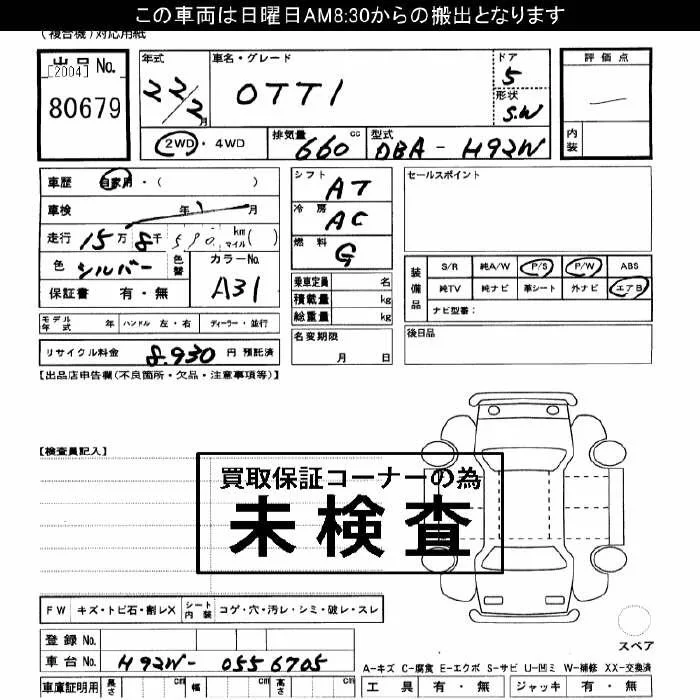 この車両は日曜日AM8:30からの搬出となります
(複合機)対応用紙
出品No.
[2004]
80679
年式 車名・グレード ドア 評価点
22/2月 OTTI 5
形状
S.W
2WD・4WD 排気量 660 cc 型式 DBA-H92W 内装
車歴 自家用・( )
車検 年 月
走行 15万8千590 km マイル( )
色 シルバー 色替 カラーNo.
保証書 有・無 A31
シフト AT
冷房 AC
燃料 G
乗車定員 名
積載量 kg
総重量 kg
名変期限
月 日
セールスポイント
装備品 S/R 純A/W P/S P/W ABS
純TV 純ナビ 革シート 外ナビ エアB
ナビ型番:
後日品
モデル年式 年 ハンドル 左・右 ディーラー・並行
リサイクル料金 8,930 円 預託済
【出品店申告欄(不良箇所・欠品・注意事項等)】
【検査員記入】
買取保証コーナーの為
未検査
FW キズ・トビ石・割レX シート内装 コゲ・穴・汚レ・シミ・破レ・スレ
登録 No.
車台 No. H92W-0556705
車庫証明用 長さ cm 幅 cm 高さ cm
スペア
A-キズ C-腐食 E-エクボ S-サビ U-凹ミ W-補修 XX-交換済
工具 有・無 ジャッキ 有・無